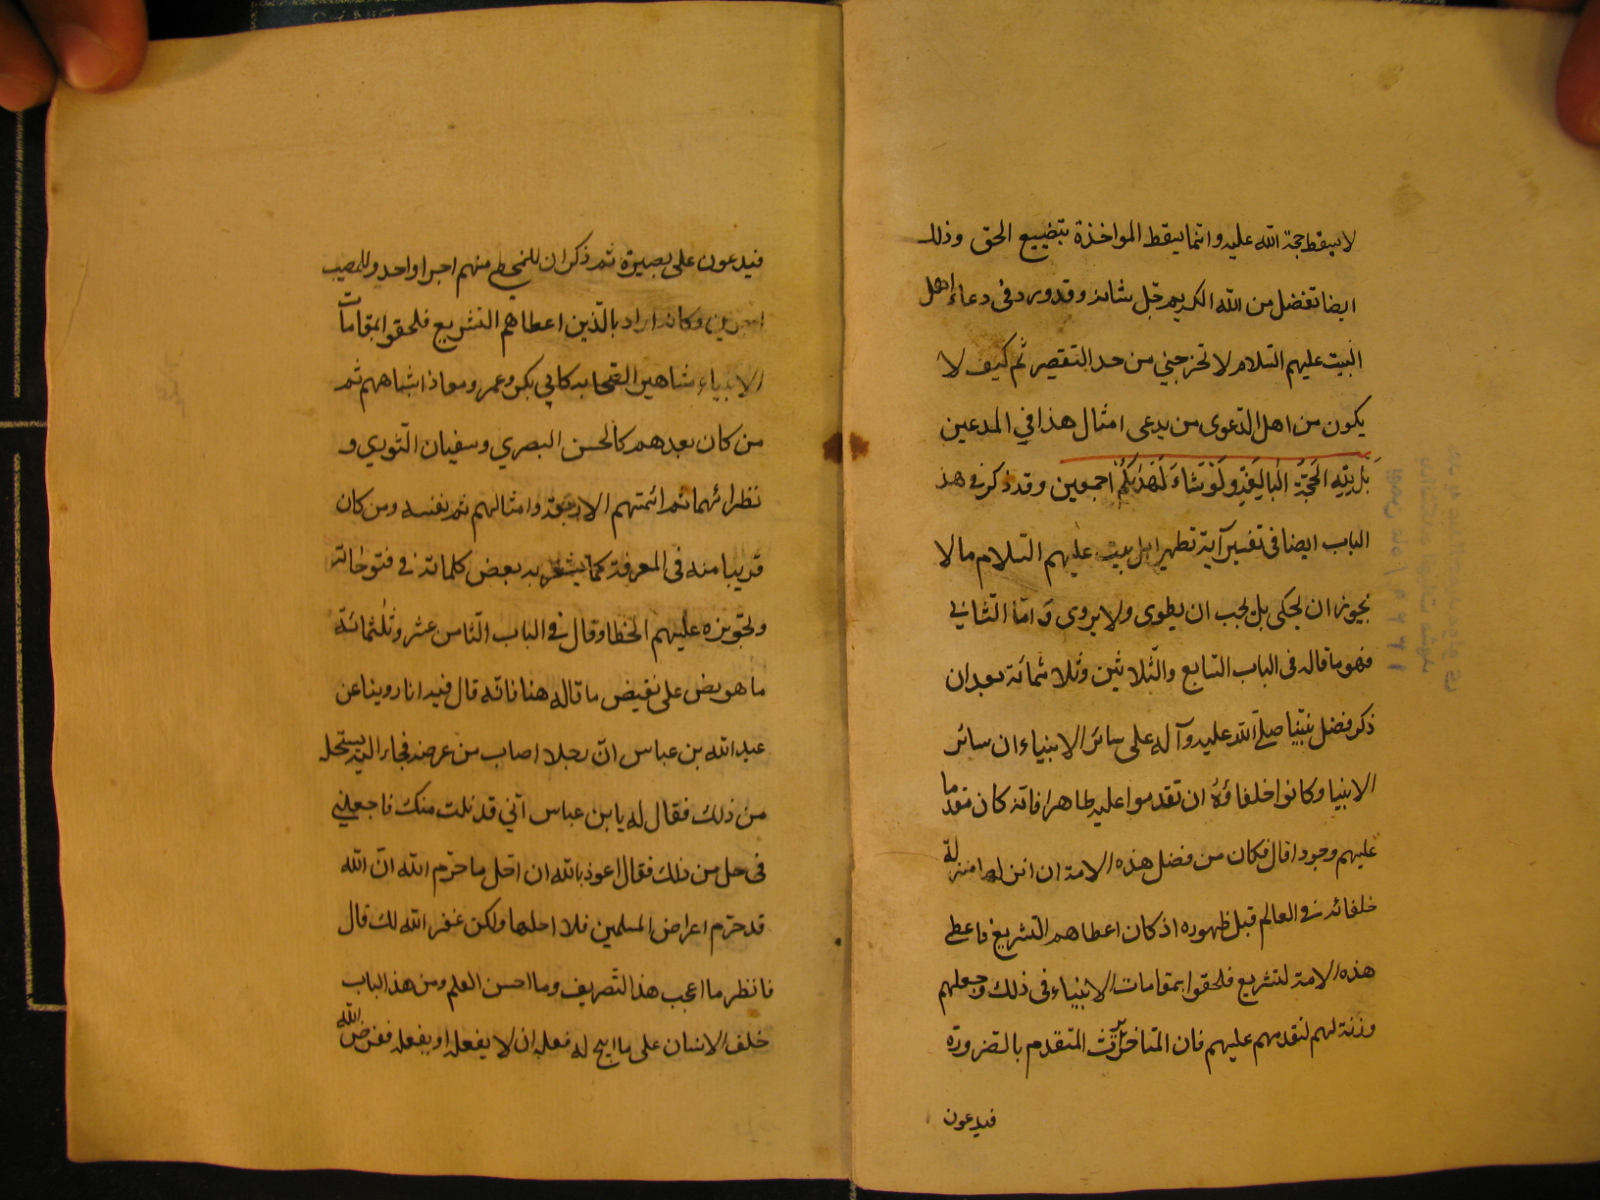 لا يسقط حجة الله عليه وانما يسقط المواخذة بتضييع الحق وذلك
ايضا تفضل من الله الكريم جل شانه وقد ورد في دعاء اهل
البيت عليهم السلام لا تخرجني من حد التقصير ثم كيف لا
يكون من اهل الدعوى من يدعى امثال هذا في المدعين
بل لله الحجة البالغة ولو شاء لهداكم اجمعين وقد ذكر في هذ
الباب ايضا في تفسير آية تطهير اهل بيت عليهم السلام ما لا
يجوز ان يحكى بل يجب ان يطوى ولا يروى واما الثاني
فهو ما قاله في الباب السابع والثلاثين وثلاثمائة بعد ان
ذكر فضل نبينا صلى الله عليه وآله على سائر الانبياء ان سائر
الانبيا وكانوا خلفاؤه ان تقدموا عليه ظاهرا فانه كان متقدما
عليهم وجودا قال فكان من فضل هذه الامة ان منزلة
خلفائه في العالم قبل ظهوره اذ كان اعطاهم التشريع فاعطى
هذه الامة لتشريع فلحقوا بمقامات الانبياء في ذلك وجعلهم
ورثة لهم لتقدمهم عليهم فان المتاخر يرث المتقدم بالضرورة
فيدعون
فيدعون على بصيرة ثم ذكر ان للمخطى منهم اجرا واحد وللمصيب
اجرين وكانه اراد بالذين اعطاهم التشريع فلحقوا بمقامات
الانبياء مشاهير الصحابه كابي بكر وعمر ومعاذ اشباههم ثم
من كان بعدهم كالحسن البصري وسفيان الثوري و
نظرائهما ثم ائمتهم الاربعة وامثالهم ثم نفسه ومن كان
قريبا منه في المعرفة كما يشعر به بعض كلماته في فتوحاته
وتجويزه عليهم الخطا وقال في الباب الثامن عشر وثلثمائة
ما هو نص على نقيض ما قاله هنا فانه قال فيه انا روينا عن
عبد الله بن عباس ان رجلا اصاب من عرضه فجاء اليه يستحله
من ذلك فقال له يا بن عباس اني قد نلت منك فاجعلني
في حل من ذلك فقال اعوذ بالله ان احل ما حرم الله ان الله
قد حرم اعراض المسلمين فلا احلها ولكن غفر الله لك قال
فانظر ما اعجب هذا التصريف وما احسن العلم ومن هذ الباب
حلف الانسان على ما ابيح له فعله ان لا يفعله او يفعله ففرض الله